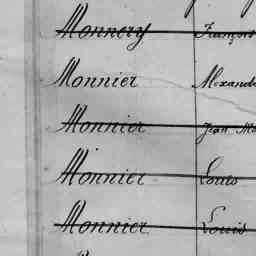 Monnery François
Monnier Alexandre
Monnier Jean
Monnier Louis
Monnier Louis